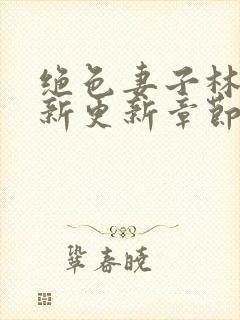 绝色妻子林
新更新章节
巩春晓